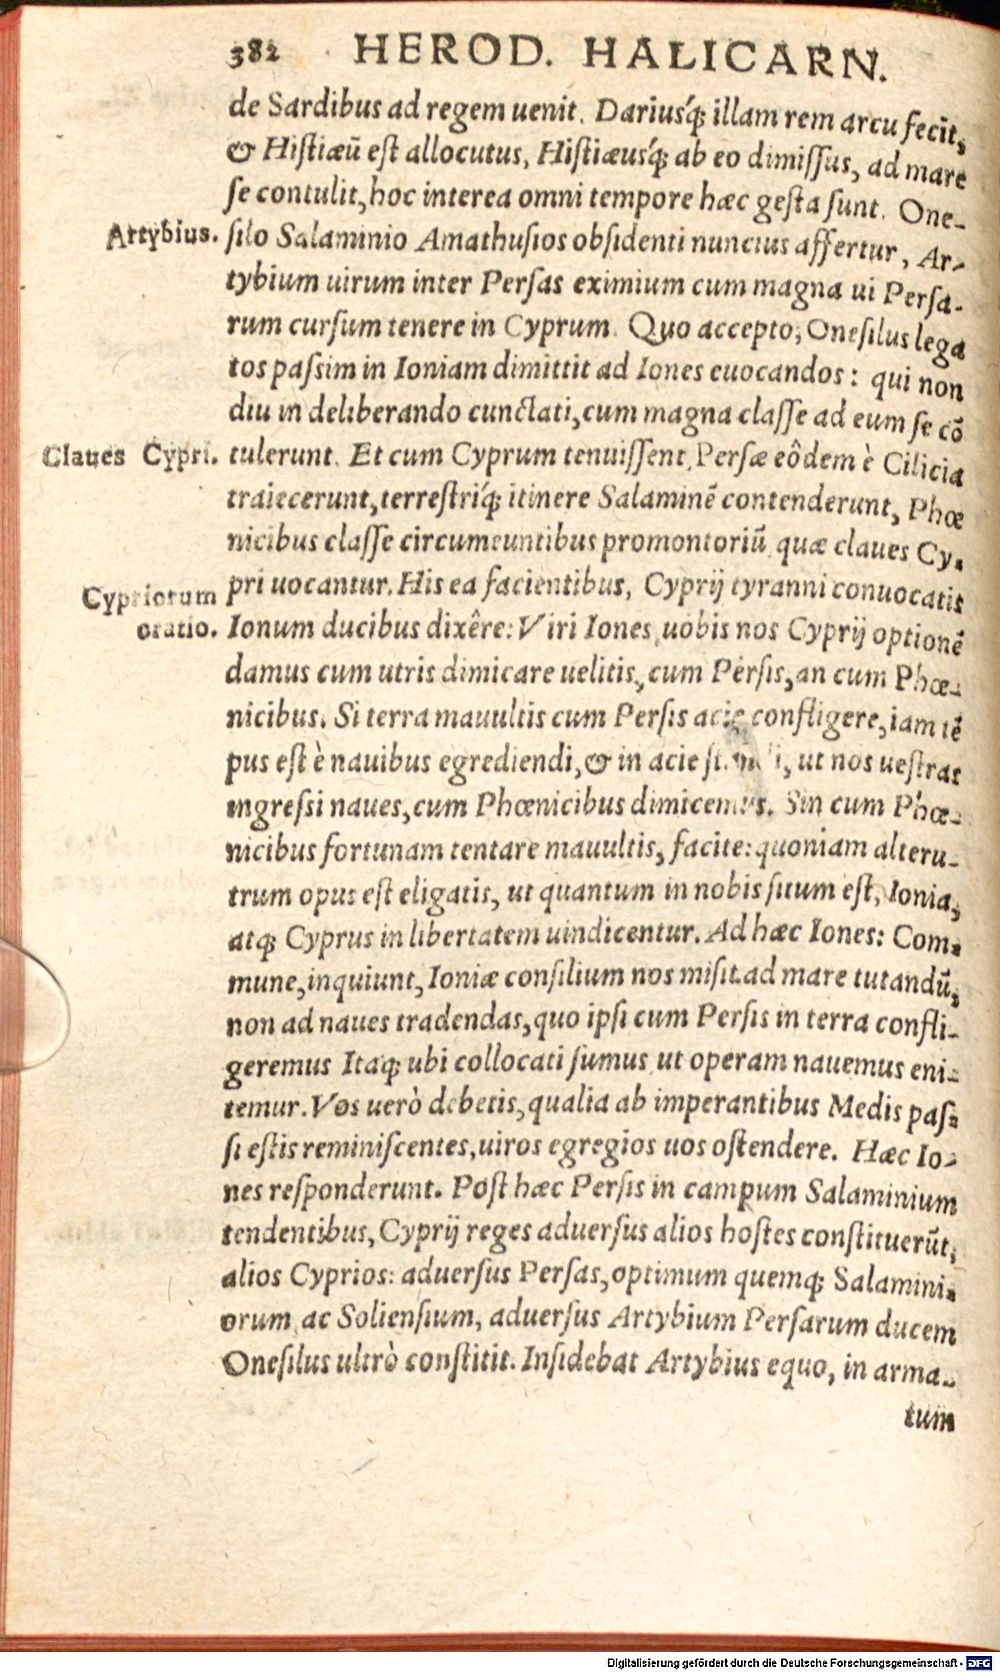 382 HEROD. HALICARN.
de Sardibus ad regem uenit. Dariusq́ꝫ illam rem arcu fecit,
& Histiæū est allocutus, Histiæusq́ꝫ ab eo dimissus, ad mare
se contulit, hoc interea omni tempore hæc gesta sunt. One-
Artybius. silo Salaminio Amathusios obsidenti nuncius affertur, Ar-
tybium uirum inter Persas eximium cum magna ui Persa-
rum cursum tenere in Cyprum. Quo accepto, Onesilus lega
tos passim in Ioniam dimittit ad Iones euocandos: qui non
diu in deliberando cunctati, cum magna classe ad eum se cō
Claues Cypri. tulerunt. Et cum Cyprum tenuissent, Persæ eôdem è Cilicia
traiecerunt, terrestriq́ꝫ itinere Salaminē contenderunt, Phœ
nicibus classe circumeuntibus promontoriū quæ claues Cy-
pri uocantur. His ea facientibus, Cyprij tyranni conuocatis
Cypriorum
oratio. Ionum ducibus dixêre: Viri Iones, uobis nos Cyprij optionē
damus cum utris dimicare uelitis, cum Persis, an cum Phœ-
nicibus. Si terra mauultis cum Persis acie confligere, iam tē
pus est è nauibus egrediendi, & in acie ut nos uestras
ingressi naues, cum Phœnicibus dimicemus. Sin cum Phœ-
nicibus fortunam tentare mauultis, facite: quoniam alteru-
trum opus est eligatis, ut quantum in nobis situm est, Ionia,
atqꝫ Cyprus in libertatem uindicentur. Ad hæc Iones: Com-
mune, inquiunt, Ioniæ consilium nos misit ad mare tutandū,
non ad naues tradendas, quo ipsi cum Persis in terra confli-
geremus Itaqꝫ ubi collocati sumus ut operam nauemus eni-
temur. Vos uerò debetis, qualia ab imperantibus Medis pas-
si estis reminiscentes, uiros egregios uos ostendere. Hæc Io-
nes responderunt. Post hæc Persis in campum Salaminium
tendentibus, Cyprij reges aduersus alios hostes constituerūt,
alios Cyprios: aduersus Persas, optimum quemqꝫ Salamini-
orum ac Soliensium, aduersus Artybium Persarum ducem
Onesilus ultrò constitit. Insidebat Artybius equo, in arma-
tum
Digitalisierung gefördert durch die Deutsche Forschungsgemeinschaft - DFG